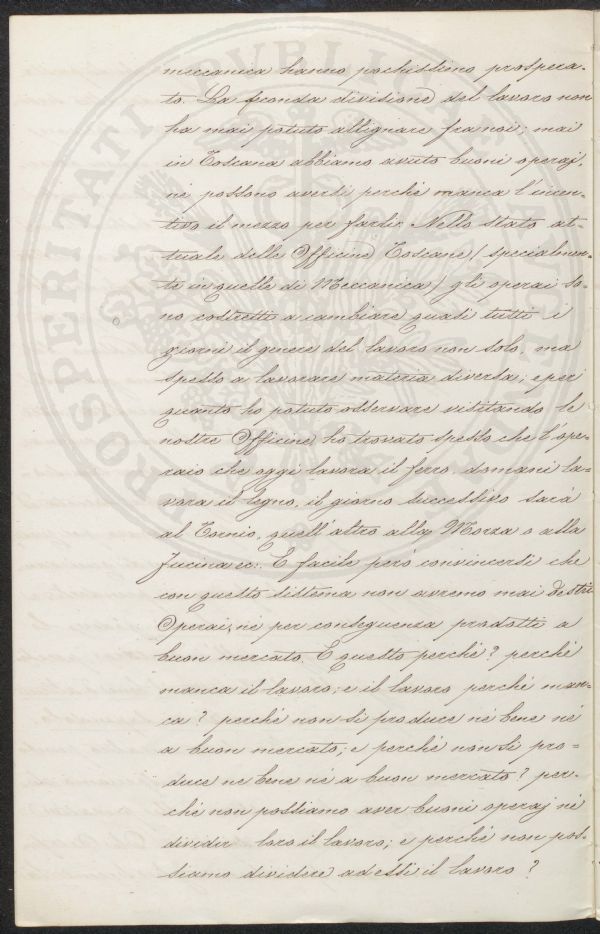 meccanica hanno pochissimo prospera-
to. La feconda divisione del lavoro non
ha mai potuto allignare fra noi; mai
in Toscana abbiamo avuto buoni operaj,
nè possono aversi perchè manca l'incen-
tivo il mezzo per farli. Nello stato at-
tuale delle Officine Toscane (specialmen-
te in quelle di Meccanica) gli operai so-
no costretti a cambiare quasi tutti i
giorni il genere del lavoro non solo, ma
spesso a lavorare materia diversa; e per
quanto ho potuto osservare visitando le
nostre Officine, ho trovato spesso che l'ope-
raio che oggi lavora il ferro, domani la-
vora il legno, il giorno successivo sarà
al Tornio, quell'altro alla Morza o alla
Fucina ec:. È facile però convincersi che
con questo sistema non avremo mai destri
Operai, nè per conseguenza prodotti a
buon mercato. E questo perchè? perchè
manca il lavoro; e il lavoro perchè man-
ca? perchè non si produce nè bene nè
a buon mercato; e perchè non si pro=
duce nè bene nè a buon mercato? per-
chè non possiamo aver buoni operaj nè
divider loro il lavoro; e perchè non pos-
siamo dividere ad essi il lavoro?
PROSPERITATI PVBLICAE